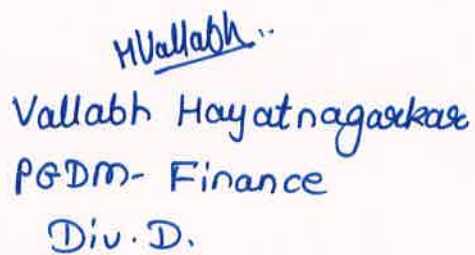 HVallabh..
Vallabh Hayatnagarkar
PGDM- Finance
Div. D.